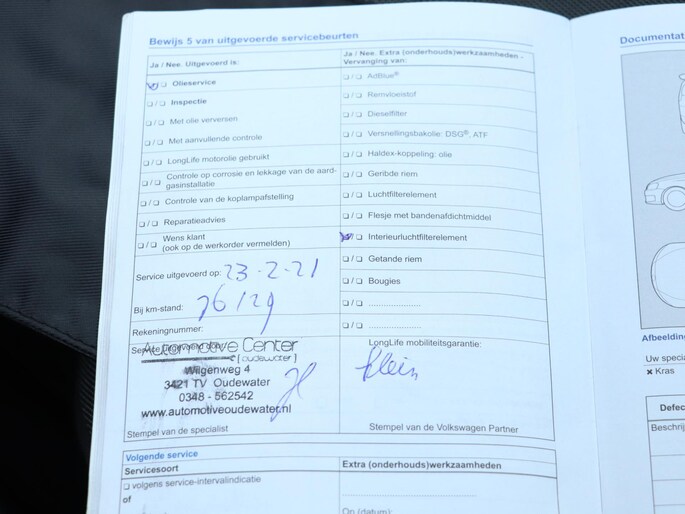 Bewijs 5 van uitgevoerde servicebeurten
Ja / Nee. Uitgevoerd is:
❏ / ❏ Olieservice
❏ / ❏ Inspectie
❏ / ❏ Met olie verversen
❏ / ❏ Met aanvullende controle
❏ / ❏ LongLife motorolie gebruikt
❏ / ❏ Controle op corrosie en lekkage van de aard-
gasinstallatie
❏ / ❏ Controle van de koplampafstelling
❏ / ❏ Reparatieadvies
❏ / ❏ Wens klant
(ook op de werkorder vermelden)
Service uitgevoerd op: 23-2-21
Bij km-stand: 76129
Rekeningnummer:
Service uitgevoerd door:
Automotive Center
(oudewater)
Wilgenweg 4
3421 TV Oudewater
0348 - 562542
www.automotiveoudewater.nl
Stempel van de specialist
Ja / Nee. Extra (onderhouds)werkzaamheden -
Vervanging van:
❏ / ❏ AdBlue®
❏ / ❏ Remvloeistof
❏ / ❏ Dieselfilter
❏ / ❏ Versnellingsbakolie: DSG®, ATF
❏ / ❏ Haldex-koppeling: olie
❏ / ❏ Geribde riem
❏ / ❏ Luchtfilterelement
❏ / ❏ Flesje met bandenafdichtmiddel
❏ / ❏ Interieurluchtfilterelement
❏ / ❏ Getande riem
❏ / ❏ Bougies
❏ / ❏ .....................
❏ / ❏ .....................
LongLife mobiliteitsgarantie:
klein
Stempel van de Volkswagen Partner
Volgende service
Servicesoort
❏ volgens service-intervalindicatie
of
Extra (onderhouds)werkzaamheden
Op (datum):
Documentat
Afbeelding
Uw specia
× Kras
Defec
Beschrij